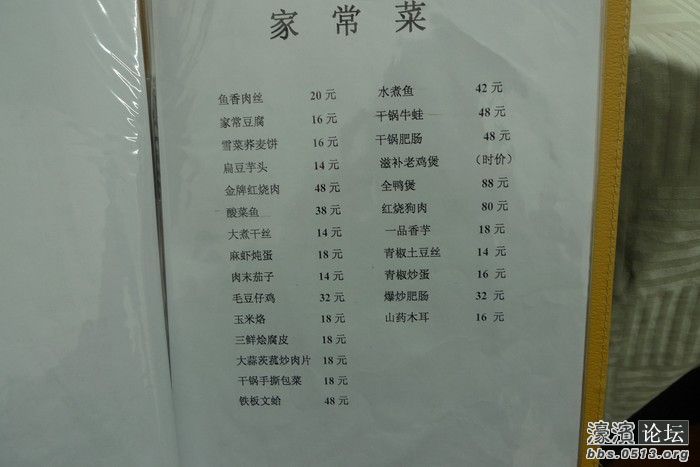 家常菜
鱼香肉丝 20 元
家常豆腐 16 元
雪菜荞麦饼 16 元
扁豆芋头 14 元
金牌红烧肉 48 元
酸菜鱼 38 元
大煮干丝 14 元
麻虾炖蛋 18 元
肉末茄子 14 元
毛豆仔鸡 32 元
玉米烙 18 元
三鲜烩腐皮 18 元
大蒜茨菰炒肉片 18 元
干锅手撕包菜 18 元
铁板文蛤 48 元
水煮鱼 42 元
干锅牛蛙 48 元
干锅肥肠 48 元
滋补老鸡煲 （时价）
全鸭煲 88 元
红烧狗肉 80 元
一品香芋 18 元
青椒土豆丝 14 元
青椒炒蛋 16 元
爆炒肥肠 32 元
山药木耳 16 元
濠滨论坛
bbs.0513.org